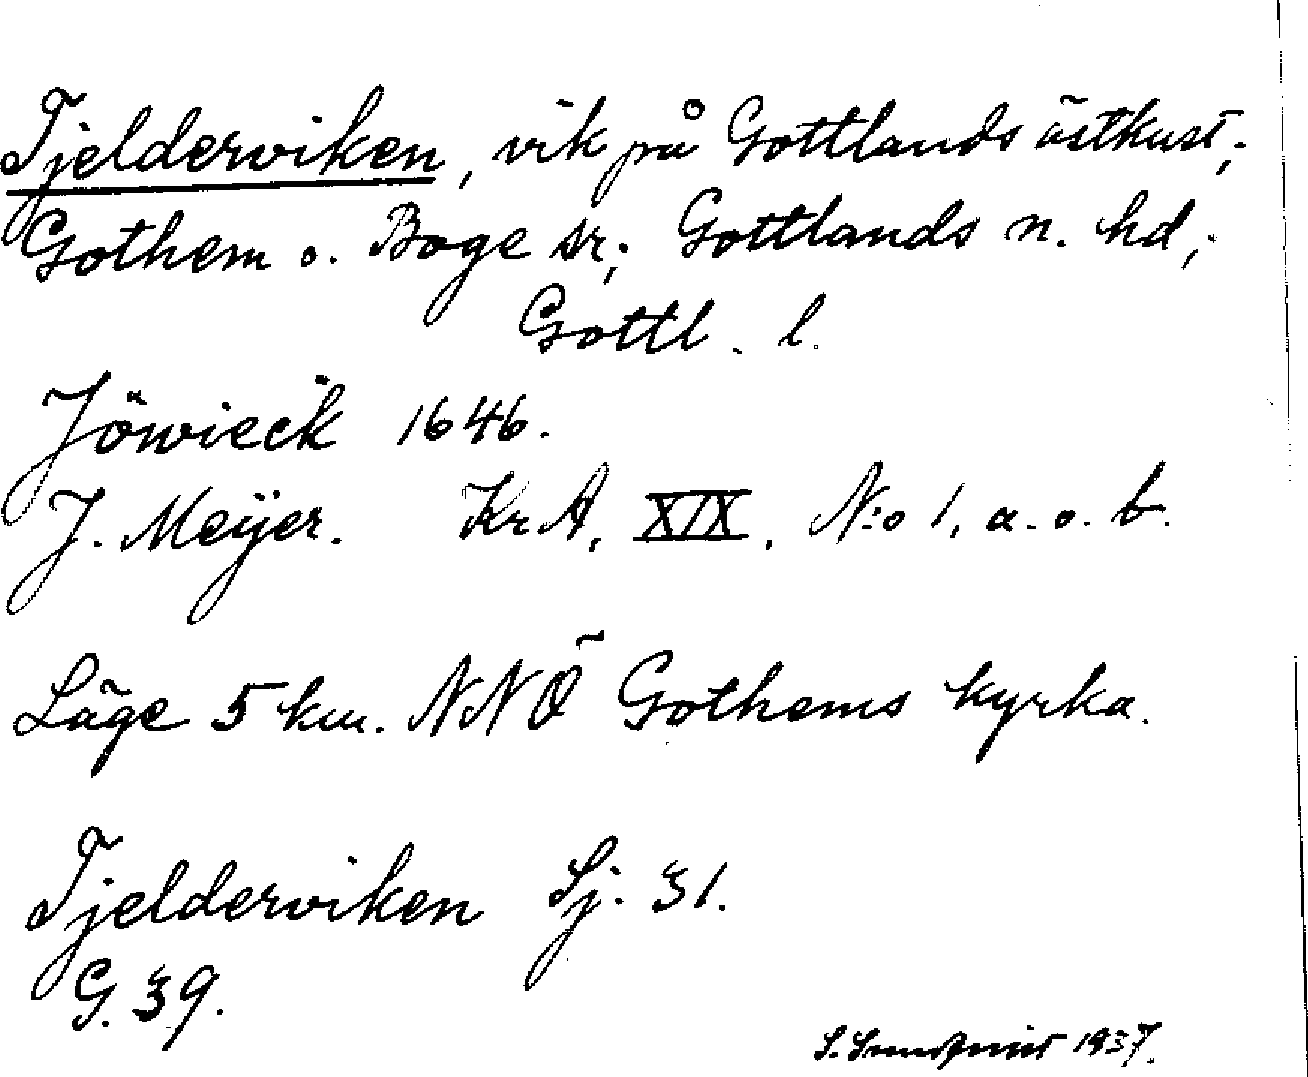 Tjelderviken, vik på Gottlands östkust;
Gothem o. Boge sr; Gottlands n. hd,;
Gottl. l.
Jöwieck 1646.
J. Meÿer. KrA, XIX, N:o 1, a. o. b.
Läge 5 km. NNÖ Gothems kyrka.
Tjelderviken Sj. 31.
G. 39.
S. 1937.